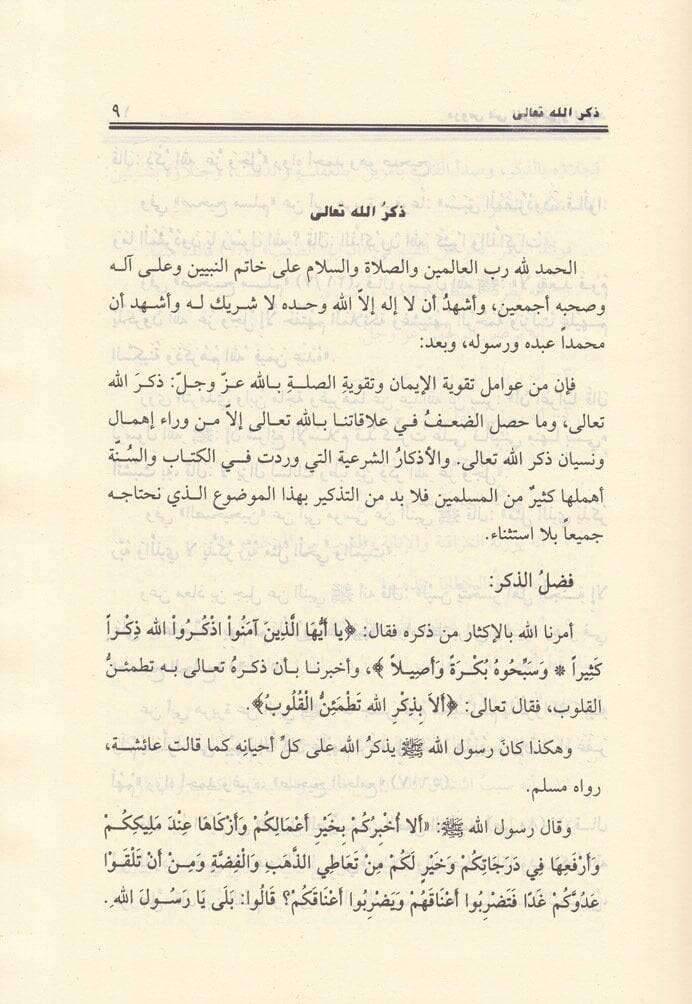 ذكر الله تعالى ٩
ذكرُ الله تعالى
الحمد لله رب العالمين والصلاة والسلام على خاتم النبيين وعلى آله
وصحبه أجمعين، وأشهدُ أن لا إله إلاّ الله وحده لا شريك له وأشهد أن
محمداً عبده ورسوله، وبعد:
فإن من عوامل تقوية الإيمان وتقويةِ الصلةِ بالله عزّ وجلّ: ذكرَ الله
تعالى، وما حصل الضعفُ في علاقاتنا بالله تعالى إلاّ من وراء إهمال
ونسيان ذكر الله تعالى. والأذكارُ الشرعية التي وردت في الكتاب والسُنّة
أهملها كثيرٌ من المسلمين فلا بد من التذكير بهذا الموضوع الذي نحتاجه
جميعاً بلا استثناء.
فضلُ الذكر:
أمرنا الله بالإكثار من ذكره فقال: ﴿يا أَيُّهَا الَّذِينَ آمَنُواْ اذْكُرُواْ الله ذِكْراً
كَثِيراً * وَسَبِّحُوهُ بُكْرَةً وَأَصِيلاً﴾، وأخبرنا بأن ذكرهُ تعالى به تطمئنُّ
القلوب، فقال تعالى: ﴿أَلاَ بِذِكْرِ الله تَطْمَئِنُّ الْقُلُوبُ﴾.
وهكذا كانَ رسول الله ﷺ يذكرُ الله على كلِّ أحيانِه كما قالت عائشة،
رواه مسلم.
وقال رسول الله ﷺ: «أَلا أُخْبِرُكُمْ بِخَيْرِ أَعْمَالِكُمْ وَأَزْكَاهَا عِنْدَ مَلِيكِكُمْ
وَأَرْفَعِهَا فِي دَرَجَاتِكُمْ وَخَيْرٍ لَكُمْ مِنْ تَعَاطِي الذَّهَبِ وَالْفِضَّةِ وَمِنْ أَنْ تَلْقَوْا
عَدُوَّكُمْ غَدًا فَتَضْرِبُوا أَعْنَاقَهُمْ وَيَضْرِبُوا أَعْنَاقَكُمْ؟ قَالُوا: بَلَى يَا رَسُولَ اللهِ.